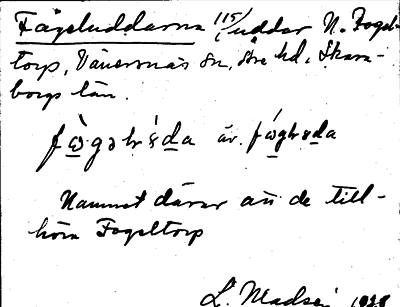 Fågeluddarna 115/ uddar N. Fogel-
torp, Vänersnäs sn, Åse hd, Skara-
borgs län.
Namnet därav att de till-
höra Fogeltorp
L. Madsén 1928